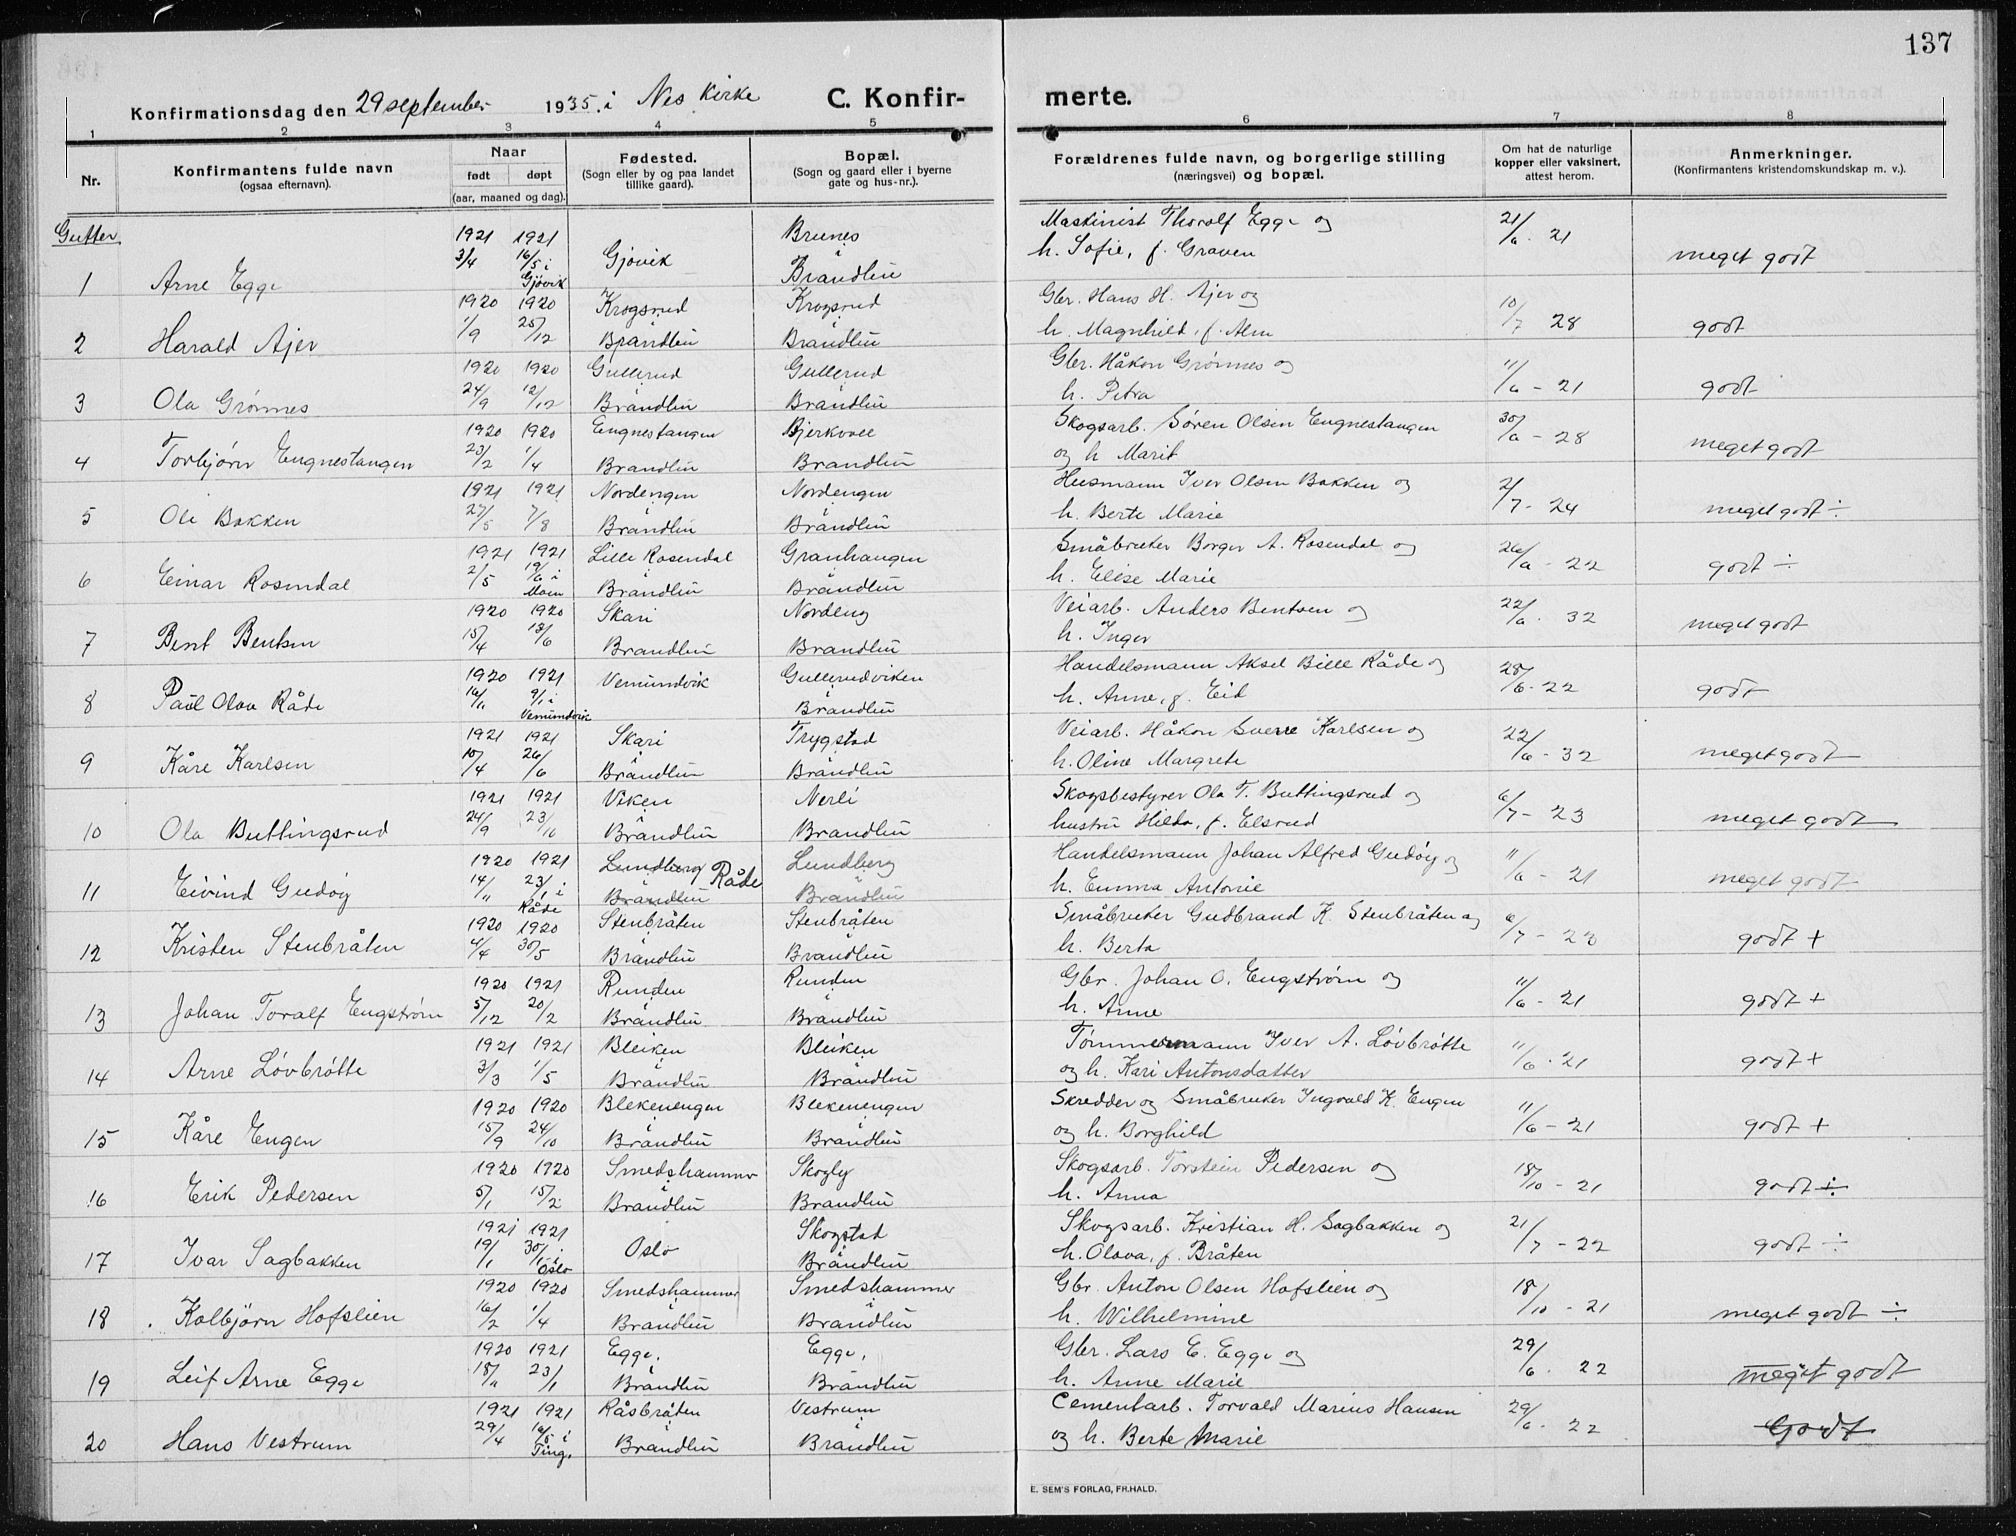 137
Konfirmationsdag den 29 september 1935. i Nes Kirke C. Konfir- merte.
1 2 3 4 5 6 7 8
Nr.
Konfirmantens fulde navn
(ogsaa efternavn).
Naar
født døpt
(aar, maaned og dag).
Fødested.
(Sogn eller by og paa landet
tillike gaard).
Bopæl.
(Sogn og gaard eller i byerne
gate og hus-nr.).
Forældrenes fulde navn, og borgerlige stilling
(næringsvei) og bopæl.
Om hat de naturlige
kopper eller vaksinert,
attest herom.
Anmerkninger.
(Konfirmantens kristendomskundskap m. v.).
Gutter
1921 1921 Brunes Maskinist Thoralf Egge og
1 Arne Egge 3/4 16/5 i Gjøvik Gjøvik i Brandlia h. Sofie, f. Graven 21/6. 21 meget godt
1920 1920 Krogsrud Krogsrud Gbr. Hans H. Ajer og
2 Harald Ajer 1/9 25/12 i Brandlia i Brandlia h. Magnhild, f. Alm 10/7 28 godt
1920 1920 Gullerud Gullerud Gbr. Håkon Grønnes og
3 Ola Grønnes 24/9 12/12 i Brandlia i Brandlia h. Petra 11/6 - 21 godt
1920 1920 Engnestangen Bjerkovll Skogsarb. Søren Olsen Engnestangen
4 Torbjørn Engnestangen 23/2 1/4 Brandlia Brandlia og h Marit 30/6 - 28 meget godt
1921 1921 Nordengen Nordengen Husmann Iver Olsen Bakken og
5 Ole Bakken 27/5 7/8 i Brandlia i Brandlia h. Berte Marie 2/7 - 24 meget godt ÷
1921 1921 Lille Rosendal Granhaugen Småbruker Borger A. Rosendal og
6 Einar Rosendal 2/5 19/6 i Moen i Brandlia i Brandlia h. Elise Marie 26/6 - 22 godt ÷
1920 1920 Skari Nordeng Veiarb. Anders Bentsen og
7 Bent Bentsen 15/4 13/6 i Brandlia i Brandlia h. Inger 22/6. 32 meget godt
1920 1921 Vemundvik Gullerudviken Handelsmann Aksel Bille Råde og
8 Paul Olav Råde 16/11 9/1 i Vemundvik i Brandlia h. Anne, f. Eid 28/6. 22 godt
1921 1921 Skari Trygstad Veiarb. Håkon Sverre Karlsen og
9 Kåre Karlsen 10/4 26/6 i Brandlia i Brandlia h. Oline Margrete 22/6 - 32 meget godt
1921 1921 Viken Nerli Skogsbestyrer Ola T. Buttingsrud og
10 Ola Buttingsrud 24/9 23/10 i Brandlia i Brandlia hustru Hilda, f. Elsrud 6/7 - 23 meget godt
1920 1921 Lundberg Råde Lundberg Handelsmann Johan Alfred Gudøy og
11 Eivind Gudøy 14/11 23/1 i Råde i Brandlia i Brandlia h. Emma Antonie 11/6 - 21 meget godt
1920 1920 Stenbråten Stenbråten Småbruker Gudbrand K. Stenbråten og
12 Kristen Stenbråten 4/4 30/5 i Brandlia i Brandlia h. Berta 6/7 - 22 godt +
1920 1921 Runden Runden Gbr. Johan O. Engstrøm og
13 Johan Toralf Engstrøm 5/12 20/2 i Brandlia i Brandlia h. Anne 11/6 - 21 godt +
1921 1921 Bleiken Bleiken Tømmermann Iver A. Løvbrøtte
14 Arne Løvbrøtte 3/3 1/5 i Brandlia i Brandlia og h. Kari Antonsdatter 11/6. 21 godt +
1920 1920 Blekenengen Blekenengen Skredder og Småbruker Ingvald K. Engen
15 Kåre Engen 15/9 24/10 i Brandlia i Brandlia og h. Borghild 11/6 - 21 godt +
1920 1920 Smedshammer Skogly Skogsarb. Torstein Pedersen og
16 Erik Pedersen 5/1 15/2 i Brandlia i Brandlia h. Anna 18/10 - 21 godt ÷
1921 1921 Skogstad Skogsarb. Kristian H. Sagbakken og
17 Ivar Sagbakken 19/1 30/1 i Oslo Oslo i Brandlia h. Olava, f. Bråten 21/7 - 22 godt ÷
1920 1920 Smedshammer Smedshammer Gbr. Anton Olsen Hofslien og
18 Kolbjørn Hofslien 16/2 1/4 i Brandlia i Brandlia h. Wilhelmine 18/10 - 21 meget godt ÷
1920 1921 Egge, Egge, Gbr. Lars E. Egge og
19 Leif Arne Egge 18/11 23/1 i Brandlia i Brandlia h. Anne Marie 29/6. 22 meget godt
1921 1921 Råsbråten Vestrum Cementarb. Torvald Marius Hansen
20 Hans Vestrum 29/4 16/5 i Ting. i Brandlia i Brandlia og h. Berte Marie 29/6. 22 Godt
E. SEM'S FORLAG, FR.HALD.